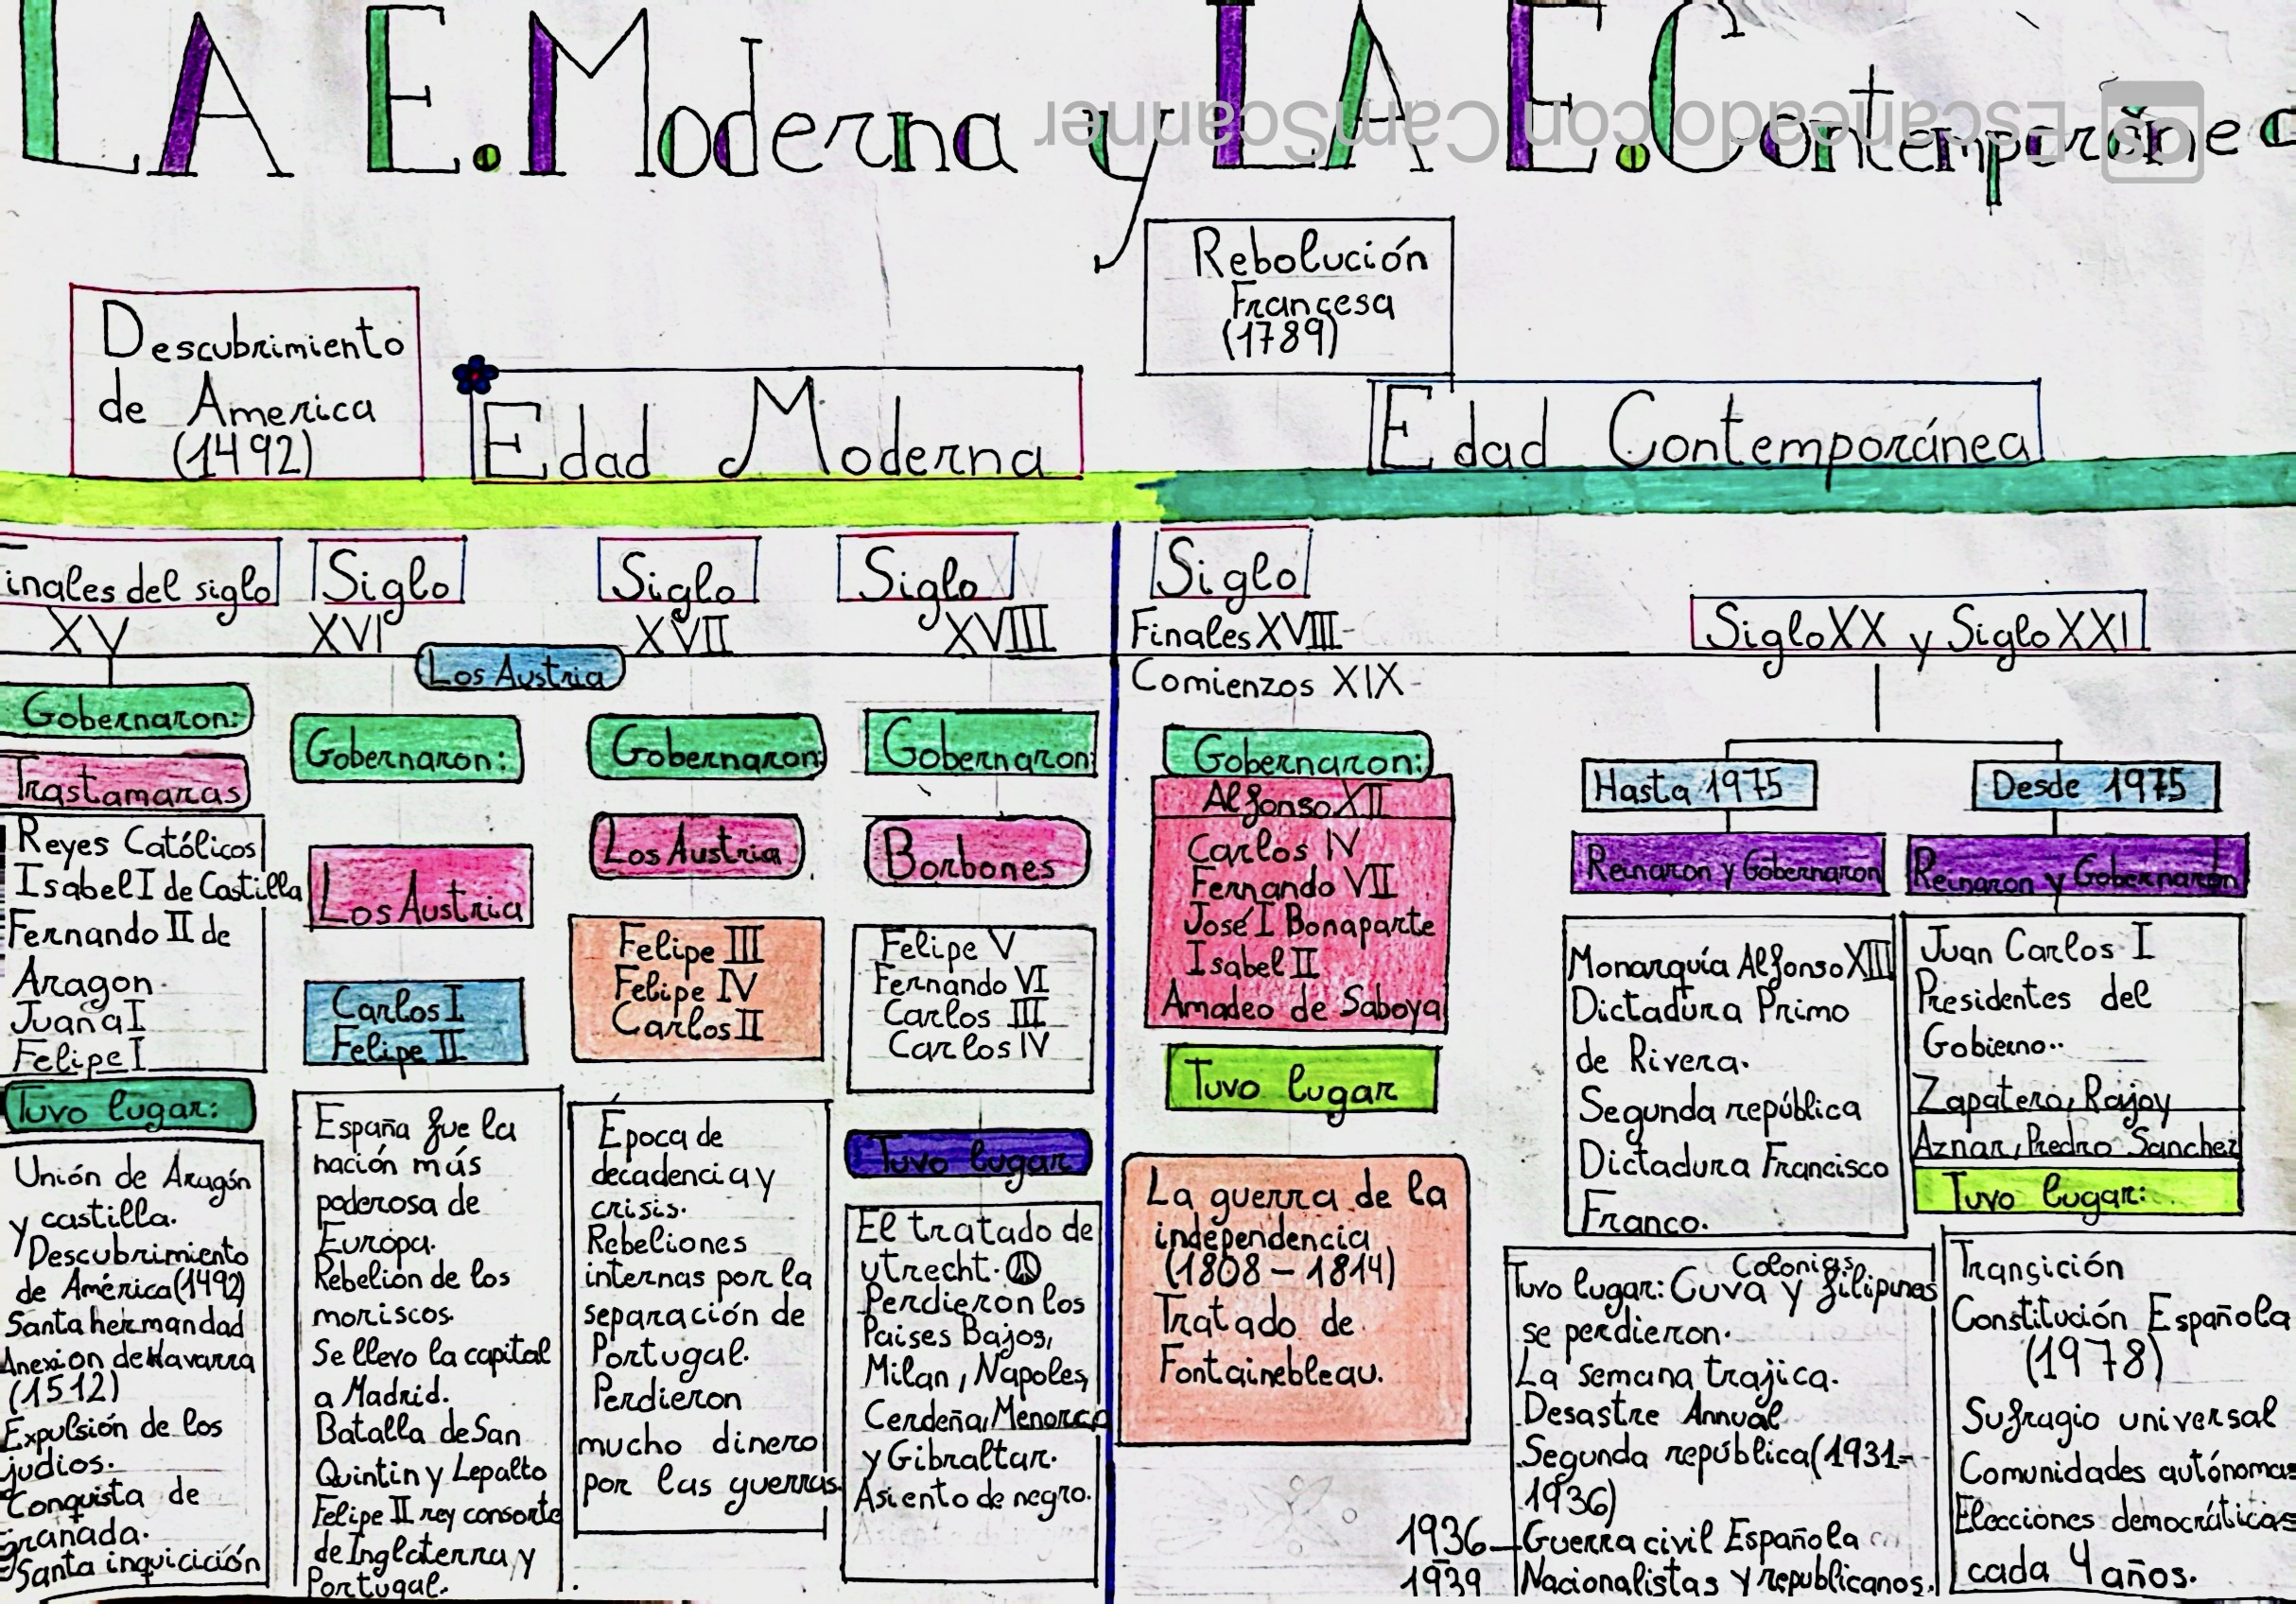 LA E. Moderna y LA E. Contemporánea
Escaneado con CamScanner
CS
Descubrimiento
de America
(1492)
Edad Moderna
Rebolución
Francesa
(1789)
Edad Contemporánea
Finales del siglo
XV
Gobernaron:
Trastamaras
Reyes Católicos
Isabel I de Castilla
Fernando II de
Aragon.
Juana I
Felipe I
Tuvo lugar:
Unión de Aragón
y castilla.
Descubrimiento
de América (1492)
Santa hermandad
Anexion de Navarra
(1512)
Expulsión de los
judios.
Conquista de
Granada.
Santa inquicición
Siglo
XVI
Los Austria
Gobernaron:
Los Austria
Carlos I
Felipe II
España fue la
nación más
poderosa de
Europa.
Rebelion de los
moriscos.
Se llevo la capital
a Madrid.
Batalla de San
Quintin y Lepalto
Felipe II rey consorte
de Inglaterra y
Portugal.
Siglo
XVII
Gobernaron:
Los Austria
Felipe III
Felipe IV
Carlos II
Época de
decadencia y
crisis.
Rebeliones
internas por la
separación de
Portugal.
Perdieron
mucho dinero
por las guerras.
Siglo
XVIII
Gobernaron:
Borbones
Felipe V
Fernando VI
Carlos III
Carlos IV
Tuvo lugar
El tratado de
utrecht.
Perdieron los
Paises Bajos,
Milan, Napoles,
Cerdeña, Menorca
y Gibraltar.
Asiento de negro.
Siglo
Finales XVIII-
Comienzos XIX-
Gobernaron:
Alfonso XII
Carlos IV
Fernando VII
José I Bonaparte
Isabel II
Amadeo de Saboya
Tuvo lugar
La guerra de la
independencia
(1808-1814)
Tratado de
Fontainebleau.
Siglo XX y Siglo XXI
Hasta 1975
Reinaron y Gobernaron
Monarquía Alfonso XIII
Dictadura Primo
de Rivera.
Segunda república
Dictadura Francisco
Franco.
Colonias
Tuvo lugar: Cuva y filipinas
se perdieron.
La semana trajica.
Desastre Annual
Segunda república (1931-
1936)
1936- Guerra civil Española
1939 Nacionalistas y republicanos.
Desde 1975
Reinaron y Gobernaron
Juan Carlos I
Presidentes del
Gobierno..
Zapatero, Rajoy
Aznar, Pedro Sanchez
Tuvo lugar:
Trangición
Constitución Española
(1978)
Sufragio universal
Comunidades autónomas
Elecciones democráticas
cada 4 años.